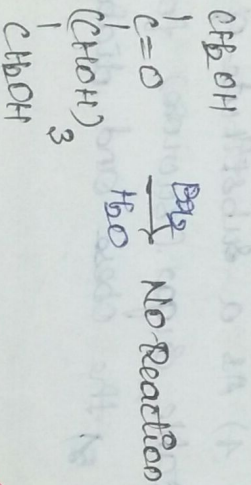 CH₂OH
C=O
(CHOH)₃
CH₂OH
Br₂
H₂O
No Reaction